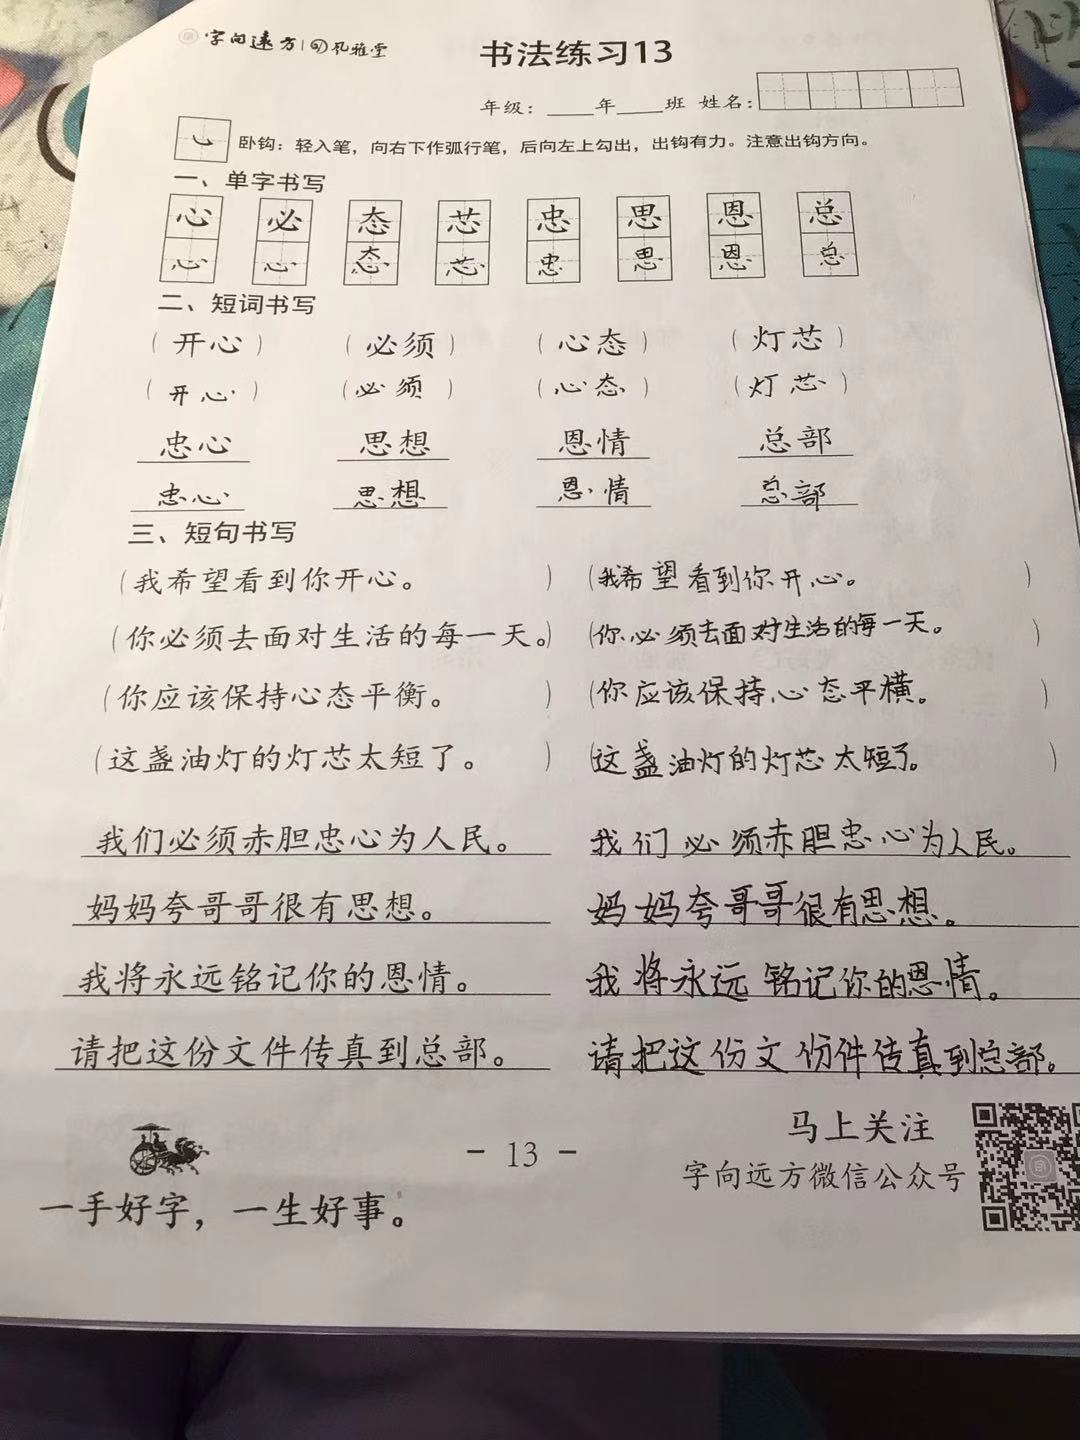 字向远方 孔雅堂
书法练习13
年级：____年____班 姓名：
卧钩：轻入笔，向右下作弧行笔，后向左上勾出，出钩有力。注意出钩方向。
一、单字书写
心 必 态 芯 忠 思 恩 总
心 心 态 芯 忠 思 恩 总
二、短词书写
（开心） （必须） （心态） （灯芯）
（开心） （必须） （心态） （灯芯）
忠心 思想 恩情 总部
忠心 思想 恩情 总部
三、短句书写
（我希望看到你开心。 ） （我希望看到你开心。 ）
（你必须去面对生活的每一天。） （你必须去面对生活的每一天。 ）
（你应该保持心态平衡。 ） （你应该保持心态平横。 ）
（这盏油灯的灯芯太短了。 ） （这盏油灯的灯芯太短了。 ）
我们必须赤胆忠心为人民。 我们必须赤胆忠心为人民。
妈妈夸哥哥很有思想。 妈妈夸哥哥很有思想。
我将永远铭记你的恩情。 我将永远铭记你的恩情。
请把这份文件传真到总部。 请把这份文份件传真到总部。
马上关注
- 13 -
字向远方微信公众号
一手好字，一生好事。